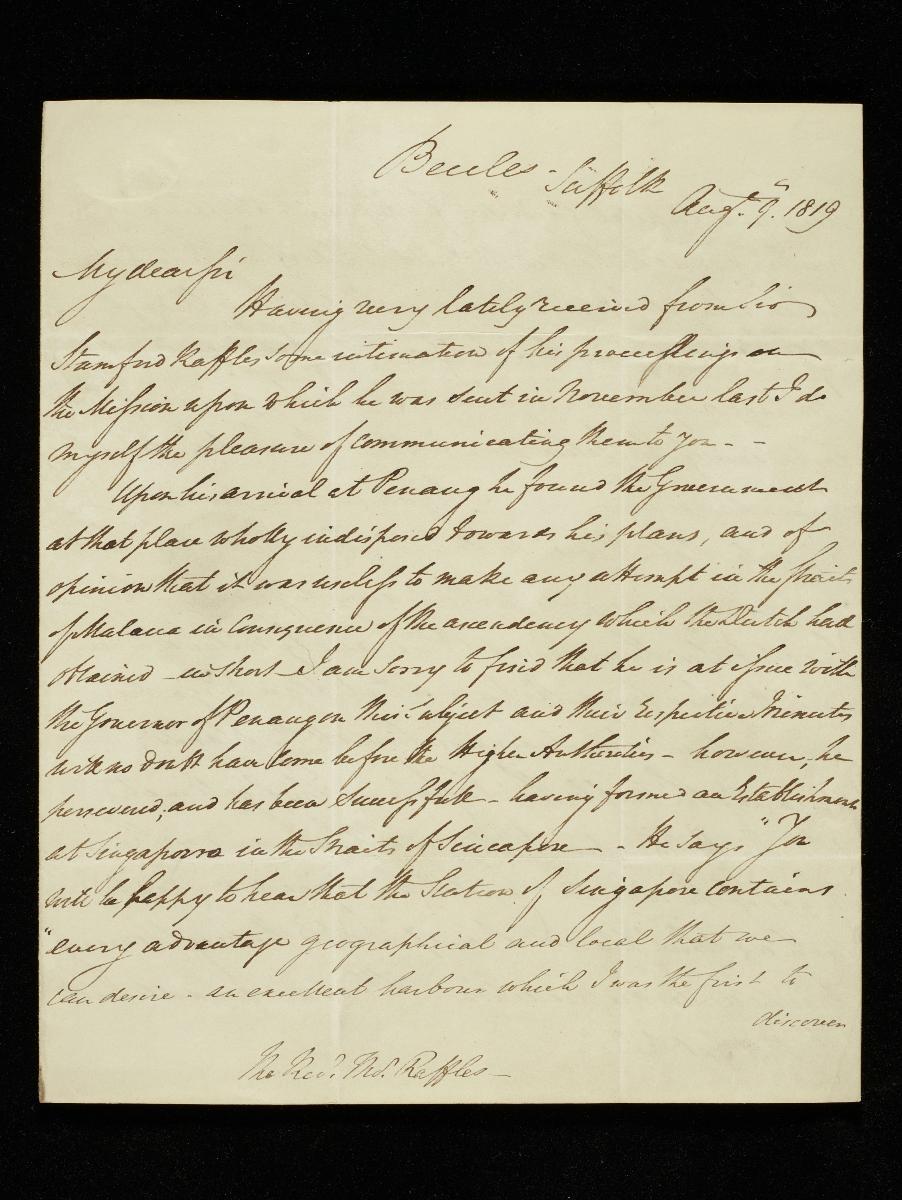 Beccles - Suffolk
Augt. 9. 1819
My dear Sir
Having very lately received from Sir
Stamford Raffles some intimation of his proceedings on
the Mission upon which he was sent in November last I do
myself the pleasure of communicating them to you - -
Upon his arrival at Penang he found the Government
at that place wholly indisposed towards his plans, and of
opinion that it was useless to make any attempt in the Straits
of Malacca in consequence of the ascendency which the Dutch had
obtained - in short - I am sorry to find that he is at issue with
the Governor of Penang on this subject and their respective Minutes
will no doubt have come before the Higher Authorities - however, he
persevered, and has been successful - having formed an Establishment
at Singapore in the Straits of Sincapore - - He says "You
will be happy to hear that the Station of Singapore contains
"every advantage geographical and local that we
can desire - an excellent harbour which I was the first to
discover
The Revd. Thos. Raffles -